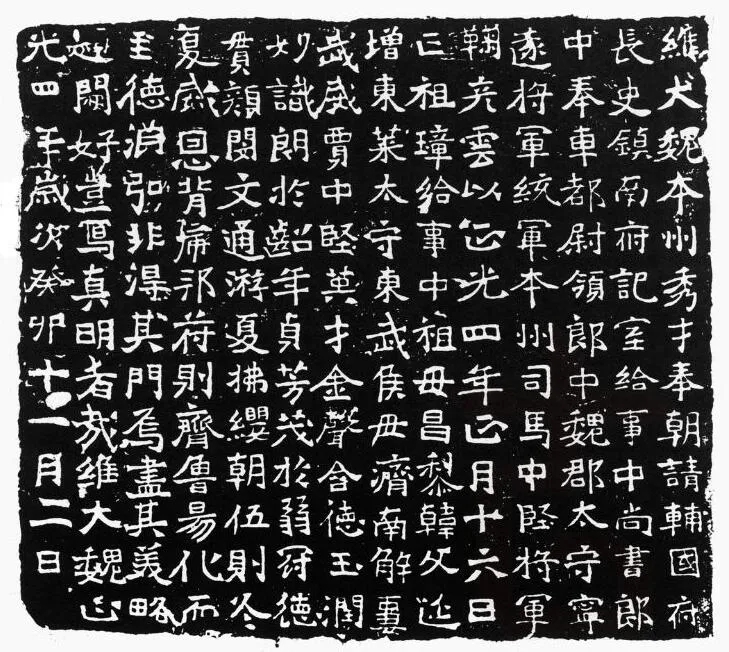 維大魏夲州秀才奉朝請輔國府
長史鎮南府記室給事中尚書郎
中奉車都尉領郎中魏郡太守寧
遠將軍統軍夲州司馬中堅將軍
鞠彦雲以正光四年正月十六日
亡祖璋給事中祖母昌黎韓父延
增東萊太守東武侯母濟南解妻
武威賈中堅英才金聲含德玉潤
妙識朗於齠年貞芳茂於弱冠德
貫顏閔文通游夏拂纓朝伍則冬
夏威恩背虎邦苻則齊魯易化而
至德淵弘非得其門焉盡其美略
題闕好豈寫真明者哉維大魏正
光四年歲次癸卯十一月二日